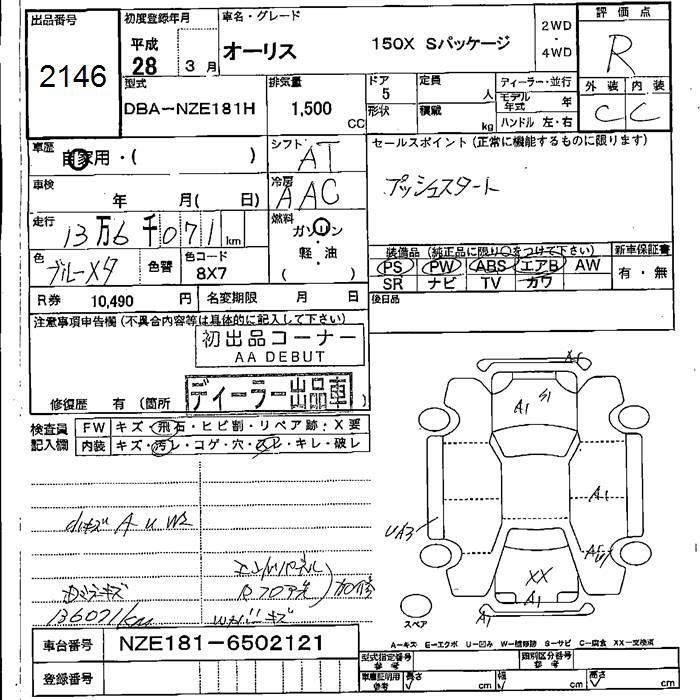 出品番号
2146
初度登録年月
平成
28 3月
車名・グレード
オーリス 150X Sパッケージ
2WD
・
4WD
評価点
R
外装 内装
C C
型式
DBA-NZE181H
排気量
1,500
CC
ドア
5
形状
定員
人
積載
kg
ディーラー・並行
モデル年式 年
ハンドル 左・右
車歴
自家用・( )
シフト
AT
セールスポイント (正常に機能するものに限ります)
プッシュスタート
車検
年 月( 日)
冷房
AAC
走行
13万6千071 km
燃料
ガソリン
・
軽・油
( )
色
ブルーメタ
色替
色コード
8X7
装備品 (純正品に限り○をつけて下さい)
PS PW ABS エアB AW
SR ナビ TV カワ
新車保証書
有・無
R券 10,490 円
名変期限 月 日
後日品
注意事項申告欄 (不具合内容等は具体的に記入して下さい)
初出品コーナー
AA DEBUT
ディーラー出品車
修復歴 有 (箇所 )
検査員
記入欄
FW キズ・飛石・ヒビ割・リペア跡・X要
内装 キズ・汚レ・コゲ・穴・スレ・キレ・破レ
小キズ A U W2
136071km
加修
A1 S1
A1
UA3
XX
A1
A1
スペア
車台番号 NZE181-6502121
登録番号
A-キズ E-エクボ U-凹み W-補修跡 S-サビ C-腐食 XX-交換済
型式指定番号
参考
類別区分番号
参考
車庫証明用
参考
長さ
√ cm
幅
√ cm
高さ
√ cm